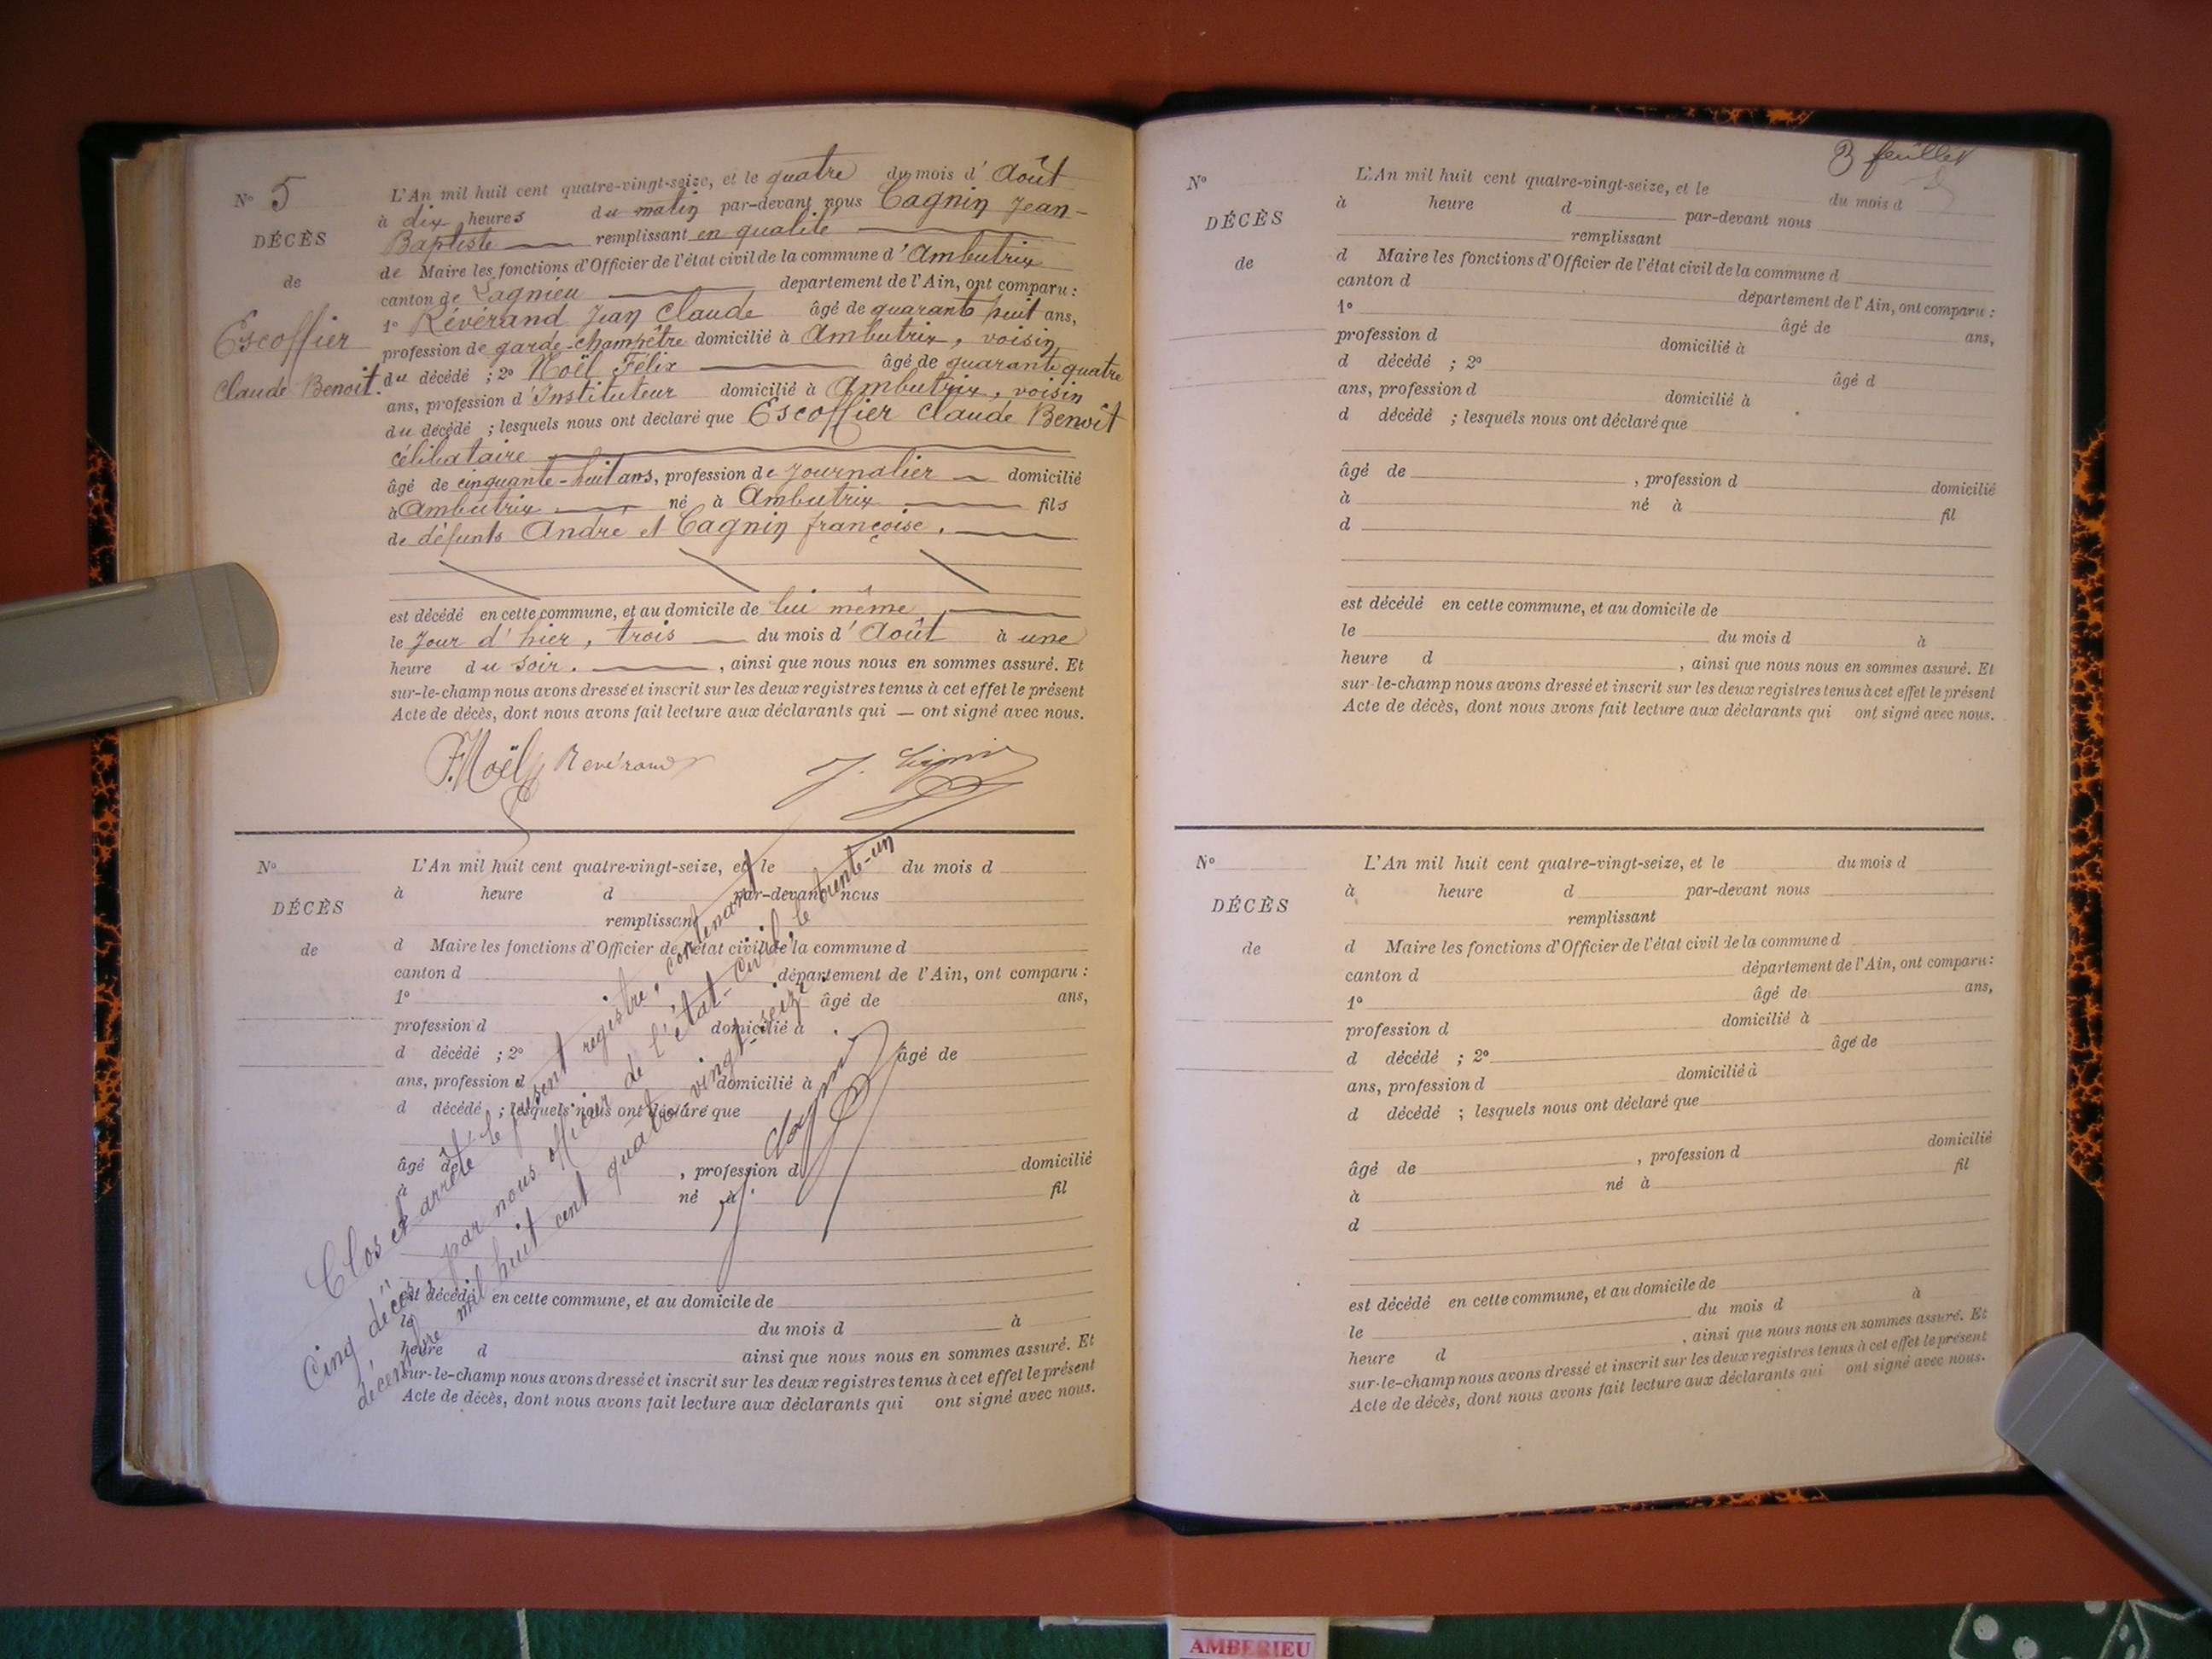 N° 5
DÉCÈS
de
Escoffier
Claude Benoit.
L'An mil huit cent quatre-vingt-seize, et le quatre du mois d'Août
à dix heures du matin par-devant nous Cagnin Jean-
Baptiste remplissant en qualité
de Maire les fonctions d'Officier de l'état civil de la commune d'Ambutrix
canton de Lagnieu département de l'Ain, ont comparu :
1° Révérand Jean Claude âgé de quarante huit ans,
profession de garde-champêtre domicilié à Ambutrix, voisin
du décédé ; 2° Noël Félix âgé de quarante quatre
ans, profession d'Instituteur domicilié à Ambutrix, voisin
du décédé ; lesquels nous ont déclaré que Escoffier Claude Benoît
célibataire
âgé de cinquante-huit ans, profession de journalier domicilié
à Ambutrix né à Ambutrix fils
de défunts André et Cagnin françoise.
est décédé en cette commune, et au domicile de lui même,
le jour d'hier, trois du mois d'Août à une
heure du soir. , ainsi que nous nous en sommes assuré. Et
sur-le-champ nous avons dressé et inscrit sur les deux registres tenus à cet effet le présent
Acte de décès, dont nous avons fait lecture aux déclarants qui — ont signé avec nous.
F. Noël Revérand J. Cagnin
N°
DÉCÈS
de
L'An mil huit cent quatre-vingt-seize, et le du mois d
à heure d par-devant nous
remplissant
d Maire les fonctions d'Officier de l'état civil de la commune d
canton d département de l'Ain, ont comparu :
1° âgé de ans,
profession d domicilié à
d décédé ; 2° âgé de
ans, profession d domicilié à
d décédé ; lesquels nous ont déclaré que
âgé de , profession d domicilié
à né à fil
d
est décédé en cette commune, et au domicile de
le du mois d à
heure d ainsi que nous nous en sommes assuré. Et
sur-le-champ nous avons dressé et inscrit sur les deux registres tenus à cet effet le présent
Acte de décès, dont nous avons fait lecture aux déclarants qui ont signé avec nous.
Clos et arrêté le présent registre, contenant
Cinq décès, par nous officier de l'état-civil le trente-un
décembre mil huit cent quatre vingt-seize.
J. Cagnin
3 feuillet
N°
DÉCÈS
de
L'An mil huit cent quatre-vingt-seize, et le du mois d
à heure d par-devant nous
remplissant
d Maire les fonctions d'Officier de l'état civil de la commune d
canton d département de l'Ain, ont comparu :
1° âgé de ans,
profession d domicilié à
d décédé ; 2° âgé d
ans, profession d domicilié à
d décédé ; lesquels nous ont déclaré que
âgé de , profession d domicilié
à né à fil
d
est décédé en cette commune, et au domicile de
le du mois d à
heure d , ainsi que nous nous en sommes assuré. Et
sur-le-champ nous avons dressé et inscrit sur les deux registres tenus à cet effet le présent
Acte de décès, dont nous avons fait lecture aux déclarants qui ont signé avec nous.
N°
DÉCÈS
de
L'An mil huit cent quatre-vingt-seize, et le du mois d
à heure d par-devant nous
remplissant
d Maire les fonctions d'Officier de l'état civil de la commune d
canton d département de l'Ain, ont comparu :
1° âgé de ans,
profession d domicilié à
d décédé ; 2° âgé de
ans, profession d domicilié à
d décédé ; lesquels nous ont déclaré que
âgé de , profession d domicilié
à né à fil
d
est décédé en cette commune, et au domicile de
le du mois d à
heure d , ainsi que nous nous en sommes assuré. Et
sur-le-champ nous avons dressé et inscrit sur les deux registres tenus à cet effet le présent
Acte de décès, dont nous avons fait lecture aux déclarants qui ont signé avec nous.
AMBERIEU